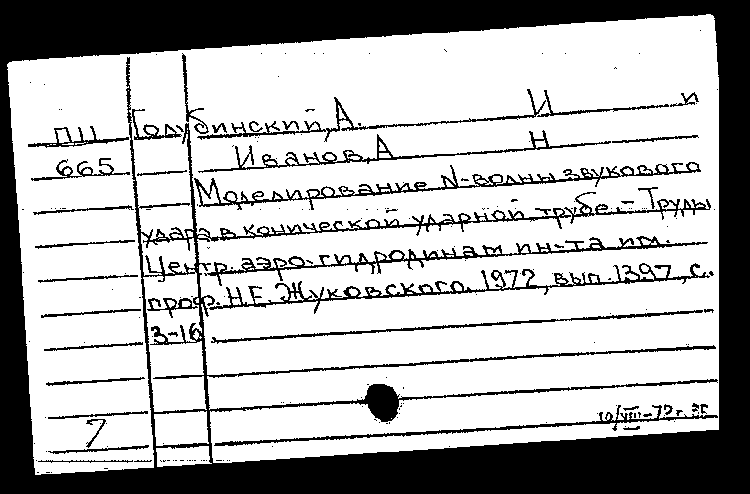 ПШ Голубинский, А. И и
665 Иванов, А Н
Моделирование N-волны звукового
удара в конической ударной трубе. – Труды
Центр. аэро-гидродинам ин-та им.
проф. Н.Е. Жуковского. 1972, вып. 1397, с.
3-16.
7
10/VIII-72г.